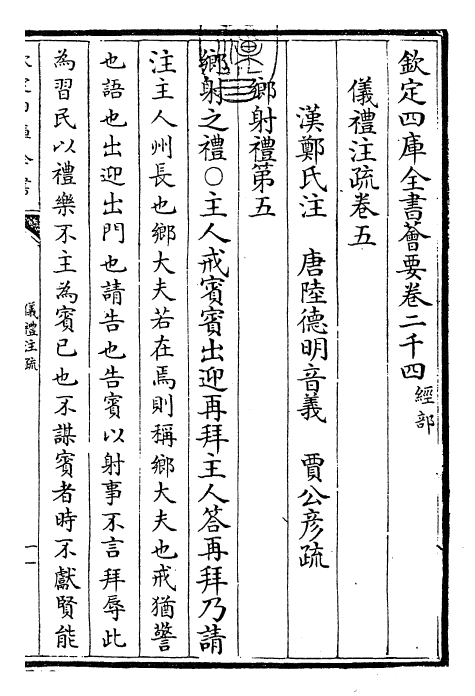 欽定四庫全書薈要卷二千四 經部
儀禮注疏卷五
漢鄭氏注 唐陸德明音義 賈公彥疏
鄉射禮第五
鄉射之禮○主人戒賓賓出迎再拜主人答再拜乃請
注主人州長也鄉大夫若在焉則稱鄉大夫也戒猶警
也語也出迎出門也請告也告賓以射事不言拜辱此
為習民以禮樂不主為賓已也不謀賓者時不獻賢能
儀禮注疏
一